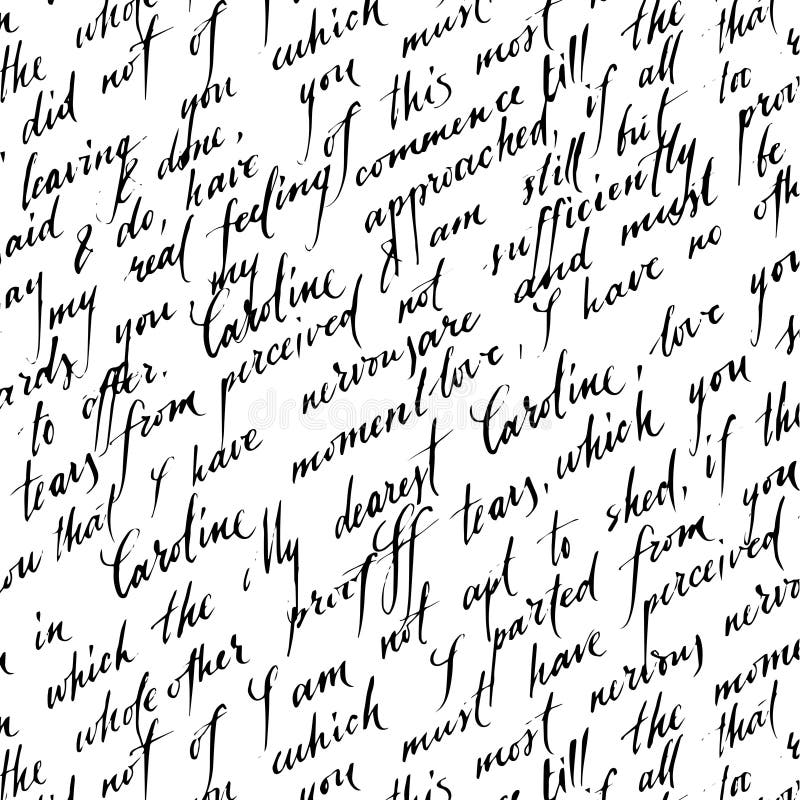 in the whole
the did not of I which must the
did not of you must most that
leaving you you this till all
said I done, of commence if too
say & do, have feeling approached, but
my real my still
ards you, Caroline & am sufficiently prov
to offer. perceived not and must be
tears from nervous are I have no oth
you that I have moment love, love you
Caroline, My dearest Caroline, you s
in in the proof tears, which if the
which other not apt to shed, you
the whole I am parted from perceived
did not of which I have nervous
you must most the mome
you this till all that